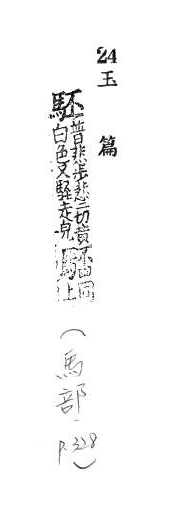 24
玉篇
駓普悲步悲二切黃
白色又駓走皃
(馬部
P.328)